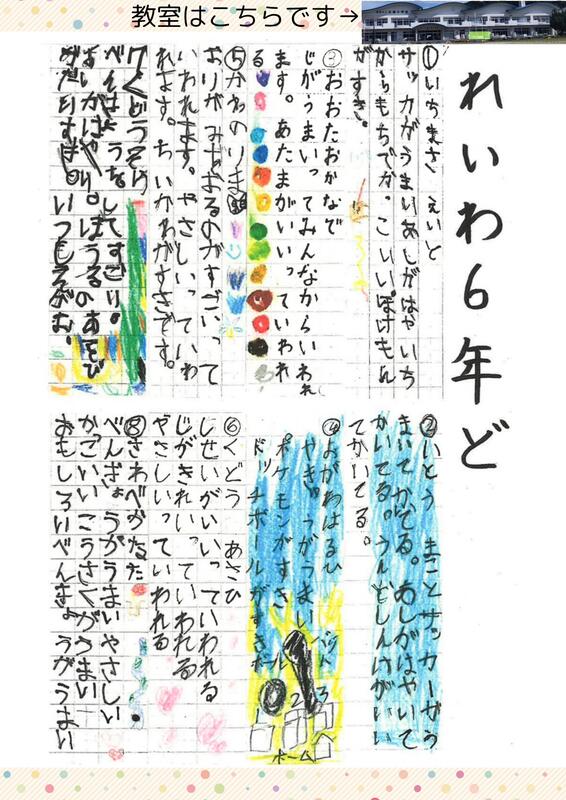 教室はこちらです→
れいわ6年ど
①いちまさ えいと
サッカがうまいあしがはやいち
からもちでか。こいい。ぽけもん
がすき。
②いとう まことサッカーがう
まいてかてる。あしがはやいて
かいてる。うんどしんけがいい
てかいてる。
③おおたおかなで
じがうまいってみんなからいわれ
ます。あたまがいいっていわれ
る
④おがわはるひ
やきゅうがうまい
ポケモンがすき
ドッチボールがすき
バット
ボール
1 2 3
ホーム
⑤かわのりま
おりがみをおるのがすごいって
いわれます。やさしいっていわ
れます。ちいかわがすきです。
⑥くどう あさひ
しせいがいいっていわれる
じがきれいっていわれる
やさしいっていわれる
いつもえがお。
⑧さわべかなた
べんきょうがうまいやさしい
かっこいいこうさくがうまい
おもしろいべんきょうがうまい